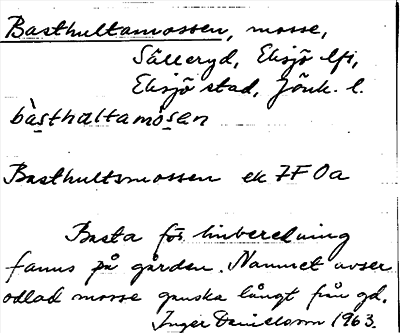 Basthultamossen, mosse,
Sälleryd, Eksjö lfs,
Eksjö stad, Jönk. l.
bàsthultamòsan
Basthultsmossen ek 7F 0a
Basta för linberedning
fanns på gården. Namnet avser
odlad mosse ganska långt från gd.
Inger Danielsson 1963.